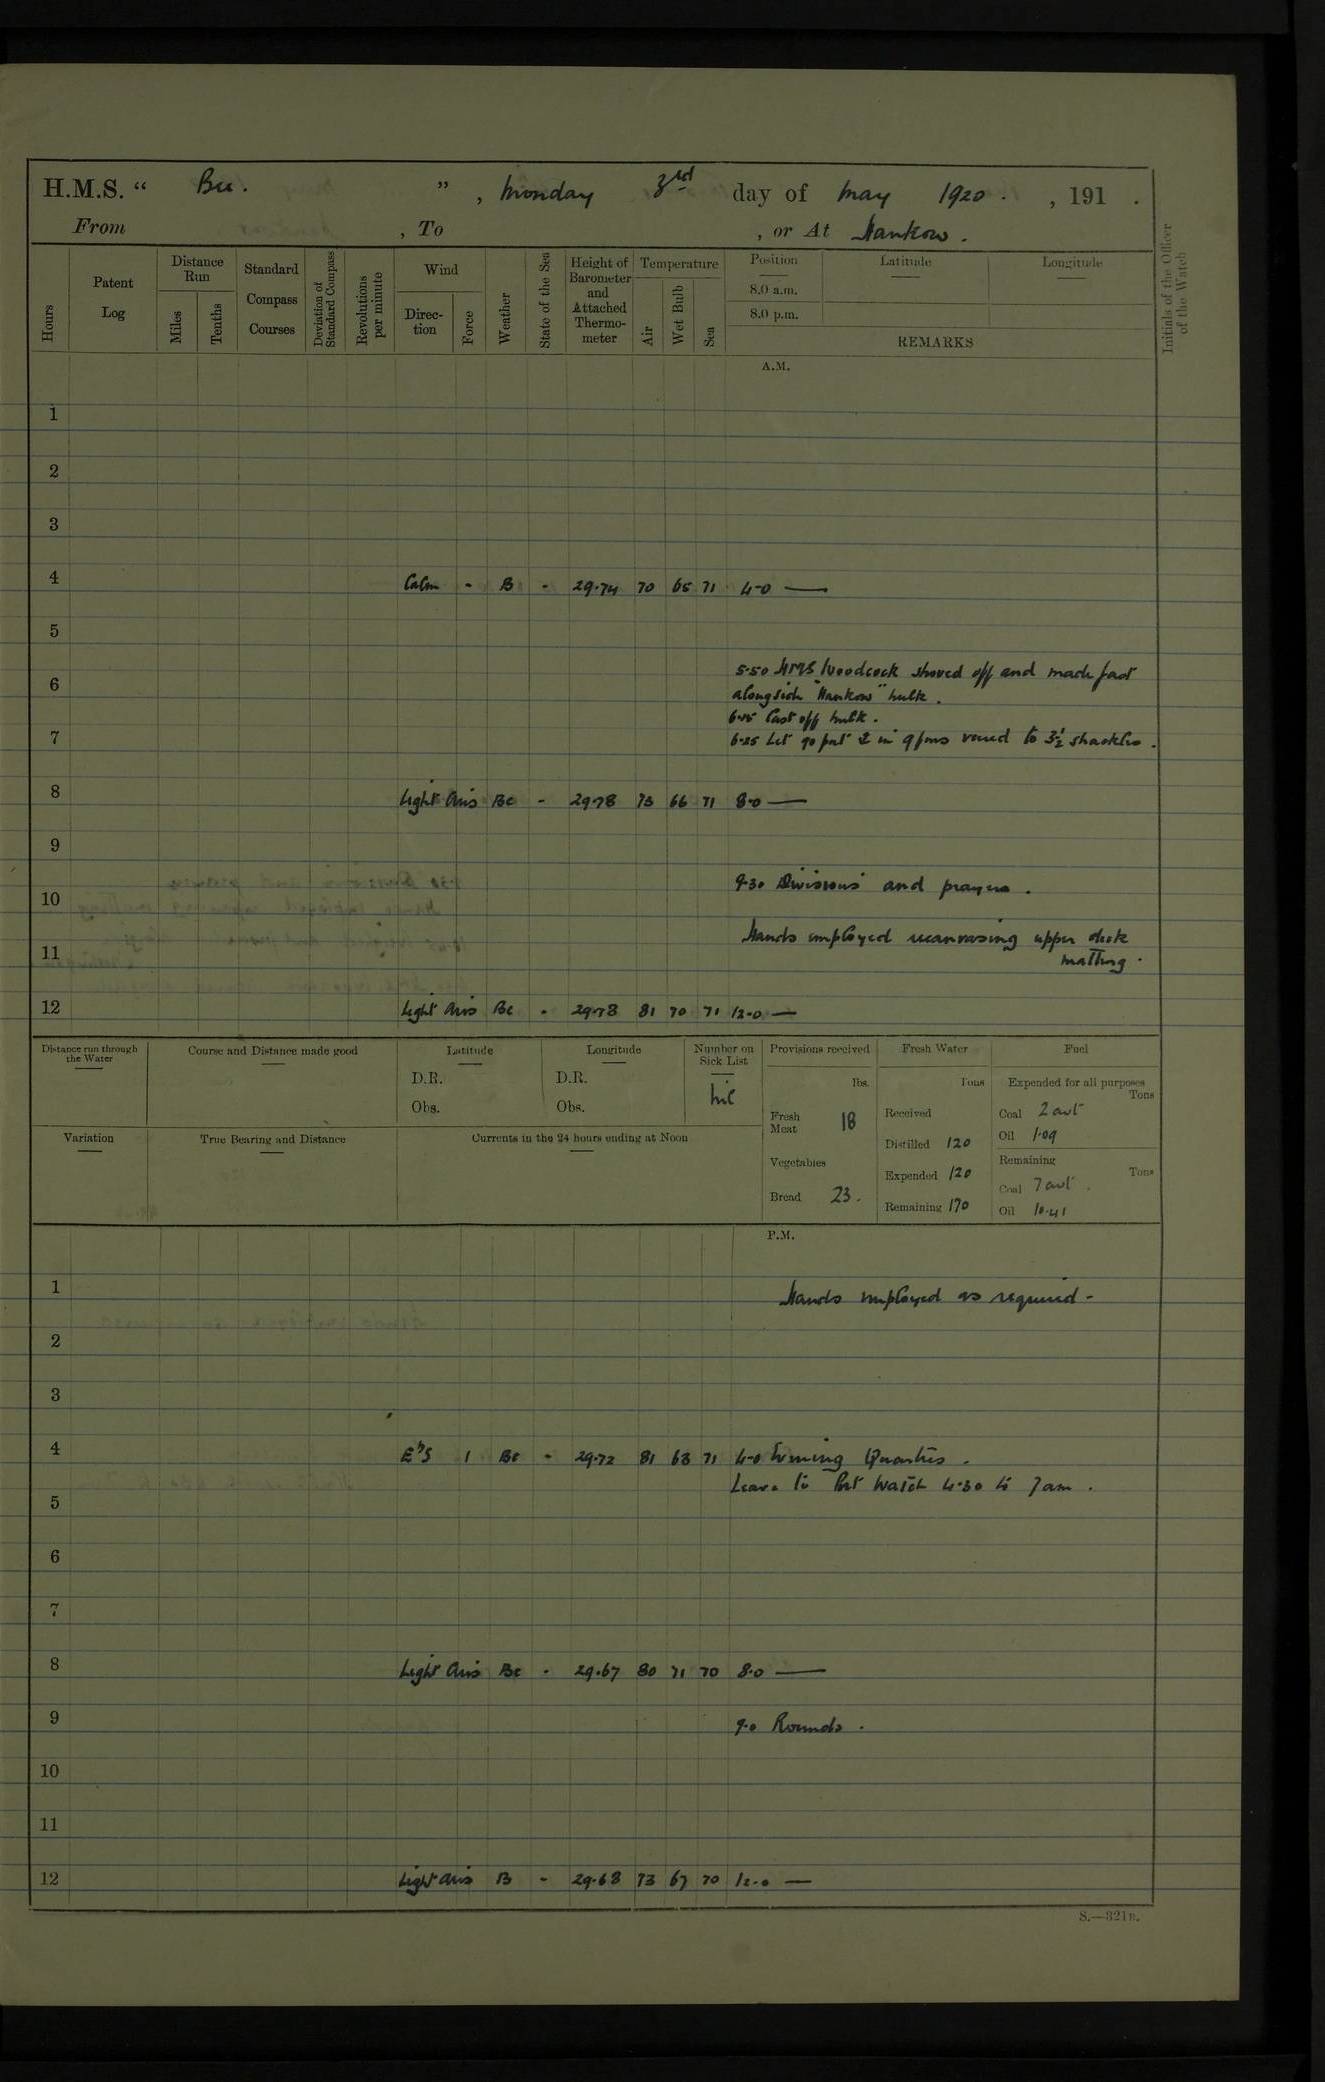 H.M.S. “ Bee. ” , Monday 3rd day of May 1920 . , 191 .
From , To , or At Hankow .
Hours
Patent Log
Distance Run
Miles
Tenths
Standard Compass Courses
Deviation of Standard Compass
Revolutions per minute
Wind
Direction
Force
Weather
State of the Sea
Height of Barometer and Attached Thermometer
Temperature
Air
Wet Bulb
Sea
Position
8.0 a.m.
8.0 p.m.
Latitude
Longitude
REMARKS
Initials of the Officer of the Watch
A.M.
1
2
3
4 Calm - B - 29.74 70 65 71 4-0 —
5
5.50 HMS Woodcock shoved off and made fast
6
alongside "Hankow" hulk .
6.15 Cast off hulk .
7 6.25 Let go port in 9 fms veered to 3½ shackles .
8 Light Airs Bc - 29.78 73 66 71 8.0 —
9
9.30 Divisions and prayers .
10
Hands employed recanvasing upper deck
11 matting .
12 Light Airs Bc - 29.78 81 70 71 12.0 —
Distance run through the Water
Course and Distance made good
Latitude
D.R.
Obs.
Longitude
D.R.
Obs.
Number on Sick List
nil
Provisions received
lbs.
Fresh Meat 18
Vegetables
Bread 23.
Fresh Water
Tons
Received
Distilled 120
Expended 120
Remaining 170
Fuel
Expended for all purposes
Tons
Coal 2 cwt
Oil 1.09
Remaining
Tons
Coal 7 cwt .
Oil 10.41
Variation
True Bearing and Distance
Currents in the 24 hours ending at Noon
P.M.
1 Hands employed as required -
2
3
4 E'S 1 Bc - 29.72 81 68 71 4-0 Evening Quarters .
Leave to Port Watch 4.30 to 7 am .
5
6
7
8 Light Airs Bc - 29.67 80 71 70 8.0 —
9 9.0 Rounds .
10
11
12 Light airs B - 29.68 73 67 70 12.0 —
S.—321B.